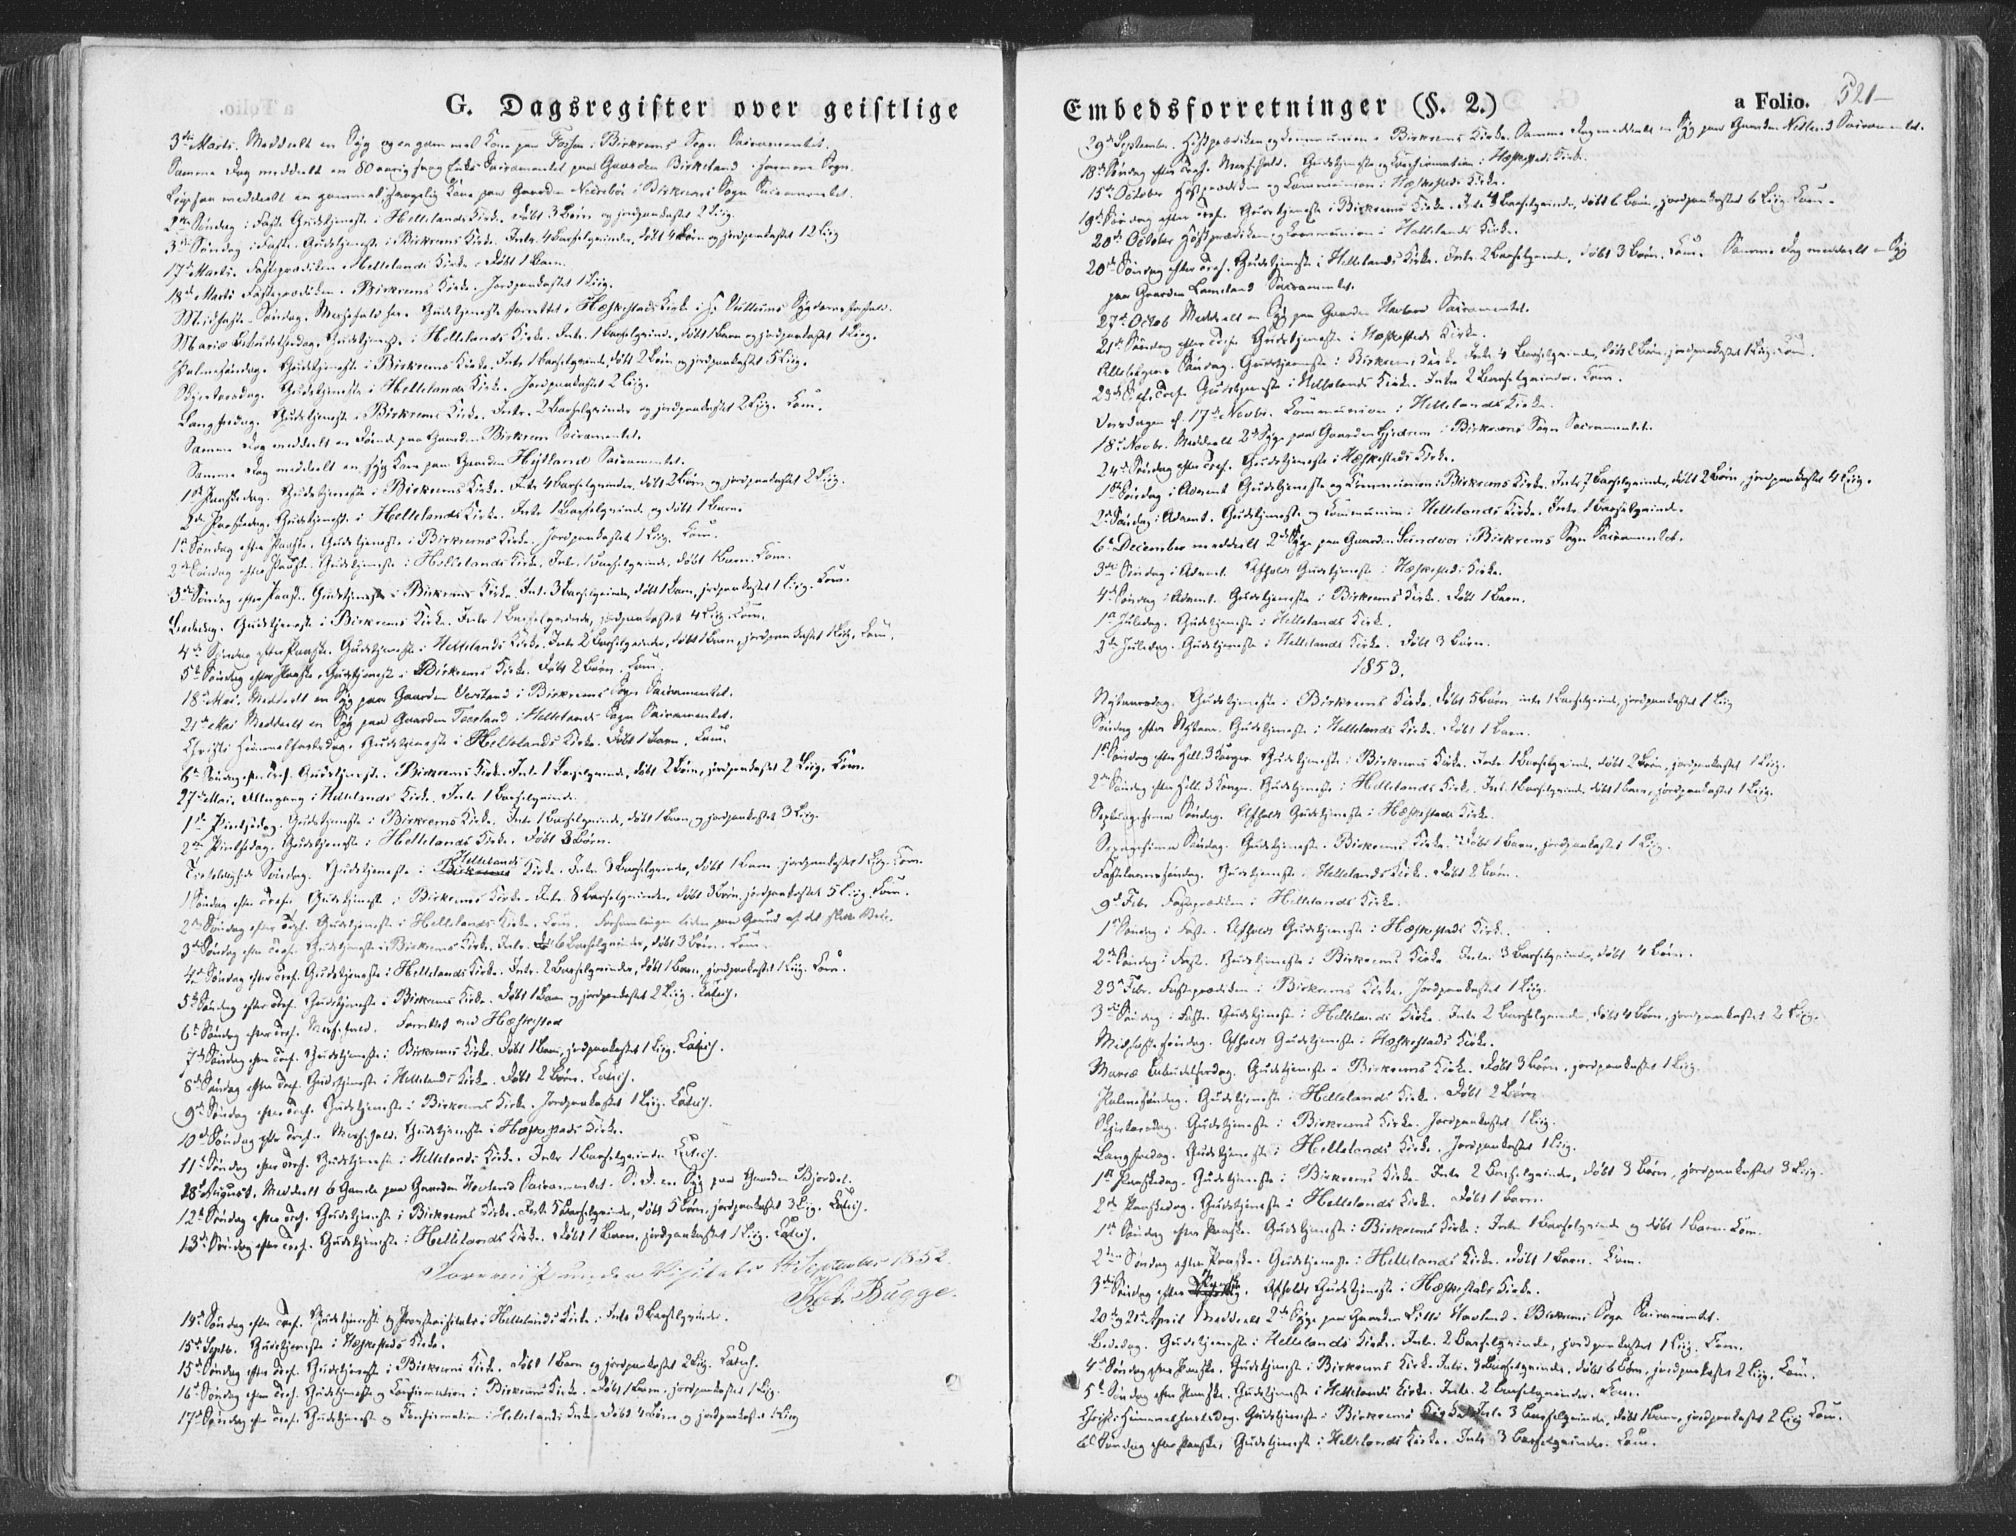 G. Dagsregister over geistlige
3die Marts. Meddeelt en Syg og en gammel Kone paa Fossen i Birkrems Sogn Sacramentet.
Samme Dag meddeelt en 80 aarig svag Enke Sacramentet paa Gaarden Birkeland i samme Sogn.
Ligesaa meddeelt en gammel svagelig Kone paa Gaarden Nedrebø i Birkrems Sogn Sacramentet.
2den Søndag i Faste Gudstjeneste i Hellelands Kirke. Døbt 3 Børn og jordpaakastet 2 Liig.
3die Søndag i Faste. Gudstjeneste i Birkrems Kirke. Intr. 4 Barselqvinder, døbt 4 Børn og jordpaakastet 12 Liig
17de Marts. Fasteprædiken i Hellelands Kirke. Døbt 1 Barn.
18de Marts Fasteprædiken i Birkrems Kirke. Jordpaakastet 1 Liig.
Midfaste Søndag. Gudstjeneste i Heskestads Kirke
Mariæ Bebudelsesdag. Gudstjeneste i Hellelands Kirke. Intr. 1 Barselqvinde, døbt 1 Barn og jordpaakastet 1 Liig.
Palmesøndag. Gudstjeneste i Birkrems Kirke. Intr. 1 Barselqvinde, døbt 2 Børn og jordpaakastet 5 Liig.
Skjertorsdag. Gudstjeneste i Hellelands Kirke. Jordpaakastet 2 Liig.
Langfredag. Gudstjeneste i Birkrems Kirke. Intr. 2 Barselqvinder og jordpaakastet 2 Liig. Com.
Samme Dag meddeelt en paa Gaarden Birkrem Sacramentet.
Samme Dag meddeelt en syg Kone paa Gaarden Høiland Sacramentet.
1ste Paaskedag. Gudstjeneste i Birkrems Kirke. Intr. 4 Barselqvinder, døbt 2 Børn og jordpaakastet 2 Liig.
2den Paaskedag. Gudstjeneste i Hellelands Kirke. Intr. 1 Barselqvinde og døbt 1 Barn.
1ste Søndag efter Paaske. Gudstjeneste i Birkrems Kirke. Jordpaakastet 1 Liig. Com.
2den Søndag efter Paaske. Gudstjeneste i Hellelands Kirke. Intr. 1 Barselqvinde, døbt 1 Barn. Com.
3die Søndag efter Paaske. Gudstjeneste i Birkrems Kirke. Intr. 3 Barselqvinder, døbt 1 Barn, jordpaakastet 1 Liig. Com.
Bededag. Gudstjeneste i Birkrems Kirke. Intr. 1 Barselqvinde, jordpaakastet 4 Liig. Com.
4de Søndag efter Paaske. Gudstjeneste i Hellelands Kirke. Intr. 2 Barselqvinder, døbt 1 Barn, jordpaakastet 1 Liig. Com.
5te Søndag efter Paaske. Gudstjeneste i Birkrems Kirke. Døbt 2 Børn. Com.
18de Mai. Meddeelt en Syg paa Gaarden Versland i Birkrems Sogn Sacramentet.
21de Mai Meddeelt en Syg paa Gaarden Terland i Hellelands Sogn Sacramentet.
Christi Himmelfartsdag. Gudstjeneste i Hellelands Kirke. Døbt 1 Barn. Com.
6te Søndag Gudstjeneste i Birkrems Kirke. Intr. 1 Barselqvinde, døbt 2 Børn, jordpaakastet 2 Liig. Com.
27de Mai. Altergang i Hellelands Kirke. Intr. 1 Barselqvinde.
1ste Pintsedag. Gudstjeneste i Birkrems Kirke. Intr. 1 Barselqvinde, døbt 1 Barn og jordpaakastet 3 Liig.
2den Pintsedag. Gudstjeneste i Hellelands Kirke. Døbt 3 Børn.
Trefoldigheds Søndag. Gudstjeneste i Hellelands Kirke. Intr. 3 Barselqvinder, døbt 1 Barn, jordpaakastet 1 Liig. Com.
1 Søndag efter Tref. Gudstjeneste i Birkrems Kirke. Intr. 8 Barselqvinder, døbt 3 Børn, jordpaakastet 5 Liig. Com.
2den Søndag efter Tref. Gudstjeneste i Hellelands Kirke. Com. Forsamlingen liden paa Grund af det slette Veir.
3die Søndag efter Tref. Gudstjeneste i Birkrems Kirke. Intr. 6 Barselqvinder, døbt 3 Børn. Com.
4de Søndag efter Tref. Gudstjeneste i Hellelands Kirke. Intr. 2 Barselqvinder, døbt 1 Barn, jordpaakastet 1 Liig. Com.
5te Søndag efter Tref. Gudstjeneste i Birkrems Kirke. Døbt 1 Barn og jordpaakastet 2 Liig. Catech.
6te Søndag efter Tref. Messefald. Forrettet ved Heskestad
7de Søndag efter Tref. Gudstjeneste i Birkrems Kirke. Døbt 1 Barn, jordpaakastet 1 Liig. Catech.
8de Søndag efter Tref. Gudstjeneste i Hellelands Kirke. Døbt 2 Børn. Catech.
9de Søndag efter Tref. Gudstjeneste i Birkrems Kirke. Jordpaakastet 1 Liig. Catech.
10de Søndag efter Tref. Messefald. Gudstjeneste i Heskestads Kirke.
11te Søndag efter Tref. Gudstjeneste i Hellelands Kirke. Intr. 1 Barselqvinde. Catech.
28de August. Meddeelt 6 Gamle paa Gaarden Hovland Sacramentet. S. D. en Syg paa Gaarden Bjordal.
12te Søndag efter Tref. Gudstjeneste i Birkrems Kirke. Intr. 5 Barselqvinder, døbt 5 Børn, jordpaakastet 3 Liig. Catech.
13de Søndag efter Tref. Gudstjeneste i Hellelands Kirke. Døbt 1 Barn, jordpaakastet 1 Liig. Catech.
Foreviist under Visitats September 1852.
Bugge.
14de Søndag efter Tref. Gudstjeneste og Provstevisitats i Hellelands Kirke. Intr. 3 Barselqvinder.
15de Septb. Gudstjeneste i Heskestads Kirke.
15de Søndag efter Tref. Gudstjeneste i Birkrems Kirke. Døbt 1 Barn og jordpaakastet 2 Liig. Catech.
16de Søndag efter Tref. Gudstjeneste og Confirmation i Birkrems Kirke. Døbt 1 Barn, jordpaakastet 1 Liig.
17de Søndag efter Tref. Gudstjeneste og Confirmation i Hellelands Kirke. Døbt 4 Børn og jordpaakastet 1 Liig
Embedsforretninger (§. 2.) a Folio. 521
29de September. Høstprædiken og Communion i Birkrems Kirke. Samme Dag meddeelt en Syg paa Gaarden Netland Sacramentet.
18de Søndag efter Tref. Messefald. Gudstjeneste og Confirmation i Heskestads Kirke.
15de October Høstprædiken og Communion i Heskestads Kirke.
19de Søndag efter Tref. Gudstjeneste i Birkrems Kirke. Intr. Barselqvinder, døbt 6 Børn, jordpaakastet 6 Liig. Com.
20de October Høstprædiken og Communion i Hellelands Kirke.
20de Søndag efter Tref. Gudstjeneste i Hellelands Kirke. Intr. 2 Barselqvinder, døbt 3 Børn. Com. Samme Dag meddeelt en Syg
paa Gaarden Lameland Sacramentet.
27de Octob Meddeelt en Syg paa Gaarden Sacramentet.
21de Søndag efter Tref. Gudstjeneste i Heskestads Kirke.
Allehelgens Søndag. Gudstjeneste i Birkrems Kirke. Intr. 4 Barselqvinder, døbt 2 Børn, jordpaakastet 1 Liig. Com.
23de S. ef. Tref. Gudstjeneste i Hellelands Kirke. Intr. 2 Barselqvinder. Com.
Onsdagen d. 17de Novbr. Communion i Hellelands Kirke.
18de Novbr. Meddeelt 2de Syge paa Gaarden Gjedrem i Birkrems Sogn Sacramentet.
24de Søndag efter Tref. Gudstjeneste i Heskestads Kirke.
1ste Søndag i Advent Gudstjeneste og Communion i Birkrems Kirke. Intr. 7 Barselqvinder, døbt 2 Børn, jordpaakastet 4 Liig.
2den Søndag i Advent. Gudstjeneste og Communion i Hellelands Kirke. Intr. 1 Barselqvinde.
6te December meddeelt 2de Syge paa Gaarden i Birkrems Sogn Sacramentet.
3die Søndag i Advent. Afholdt Gudstjeneste i Heskestads Kirke.
4de Søndag i Advent. Gudstjeneste i Birkrems Kirke. Døbt 1 Barn.
1ste Juledag. Gudstjeneste i Hellelands Kirke.
2den Juledag. Gudstjeneste i Hellelands Kirke. Døbt 3 Børn.
1853.
Nytaarsdag. Gudstjeneste i Birkrems Kirke. Døbt 5 Børn, intr. 1 Barselqvinde, jordpaakastet 1 Liig
Søndag efter Nytaar. Gudstjeneste i Hellelands Kirke. Døbt 1 Barn.
1ste Søndag efter Hell. 3 Konger. Gudstjeneste i Birkrems Kirke. Intr. 1 Barselqvinde, døbt 2 Børn, jordpaakastet 1 Liig.
2den Søndag efter Hell. 3 Konger. Gudstjeneste i Hellelands Kirke. Intr. 1 Barselqvinde, døbt 1 Barn, jordpaakastet 1 Liig.
Septuagesima Søndag. Afholdt Gudstjeneste i Heskestads Kirke.
Sexagesima Søndag. Gudstjeneste i Birkrems Kirke. Døbt 1 Barn, jordpaakastet 1 Liig.
Fastelavns Søndag. Gudstjeneste i Hellelands Kirke. Døbt 2 Børn.
9de Febr. Fasteprædiken i Hellelands Kirke.
1ste Søndag i Faste. Afholdt Gudstjeneste i Heskestads Kirke.
2den Søndag i Faste. Gudstjeneste i Birkrems Kirke. Intr. 3 Barselqvinder, døbt 4 Børn.
23de Febr. Fasteprædiken i Birkrems Kirke. Jordpaakastet 1 Liig.
3die Søndag i Faste. Gudstjeneste i Hellelands Kirke. Intr. 2 Barselqvinder, døbt 4 Børn, jordpaakastet 2 Liig.
Midfaste Søndag. Afholdt Gudstjeneste i Heskestads Kirke.
Mariæ Bebudelsesdag. Gudstjeneste i Birkrems Kirke. Døbt 3 Børn, jordpaakastet 1 Liig.
Palmesøndag. Gudstjeneste i Hellelands Kirke. Døbt 2 Børn
Skjertorsdag. Gudstjeneste i Birkrems Kirke. Jordpaakastet 1 Liig.
Langfredag. Gudstjeneste i Hellelands Kirke. Jordpaakastet 1 Liig.
1ste Paaskedag. Gudstjeneste i Birkrems Kirke. Intr. 2 Barselqvinder, døbt 3 Børn, jordpaakastet 3 Liig.
2den Paaskedag. Gudstjeneste i Hellelands Kirke. Døbt 1 Barn.
1ste Søndag efter Paaske. Gudstjeneste i Birkrems Kirke. Intr. 1 Barselqvinde og døbt 1 Barn. Com.
2den Søndag efter Paaske. Gudstjeneste i Hellelands Kirke. Døbt 1 Barn. Com.
3die Søndag efter Paaske. Afholdt Gudstjeneste i Heskestads Kirke.
20de og 21de April Meddeelt 2de Syge paa Gaarden Lille Hovland i Birkrems Sogn Sacramentet.
Bededag. Gudstjeneste i Hellelands Kirke. Intr. 2 Barselqvinder, jordpaakastet 1 Liig. Com.
4de Søndag efter Paaske. Gudstjeneste i Birkrems Kirke. Intr. 3 Barselqvinder, døbt 6 Børn, jordpaakastet 2 Liig. Com.
5te Søndag efter Paaske. Gudstjeneste i Hellelands Kirke. Intr. 2 Barselqvinder. Com.
Christi Himmelfartsdag. Gudstjeneste i Birkrems Kirke. Intr. 3 Barselqvinder, døbt 1 Barn, jordpaakastet 2 Liig Com.
6te Søndag efter Paaske. Gudstjeneste i Hellelands Kirke. Intr. 3 Barselqvinder. Com.